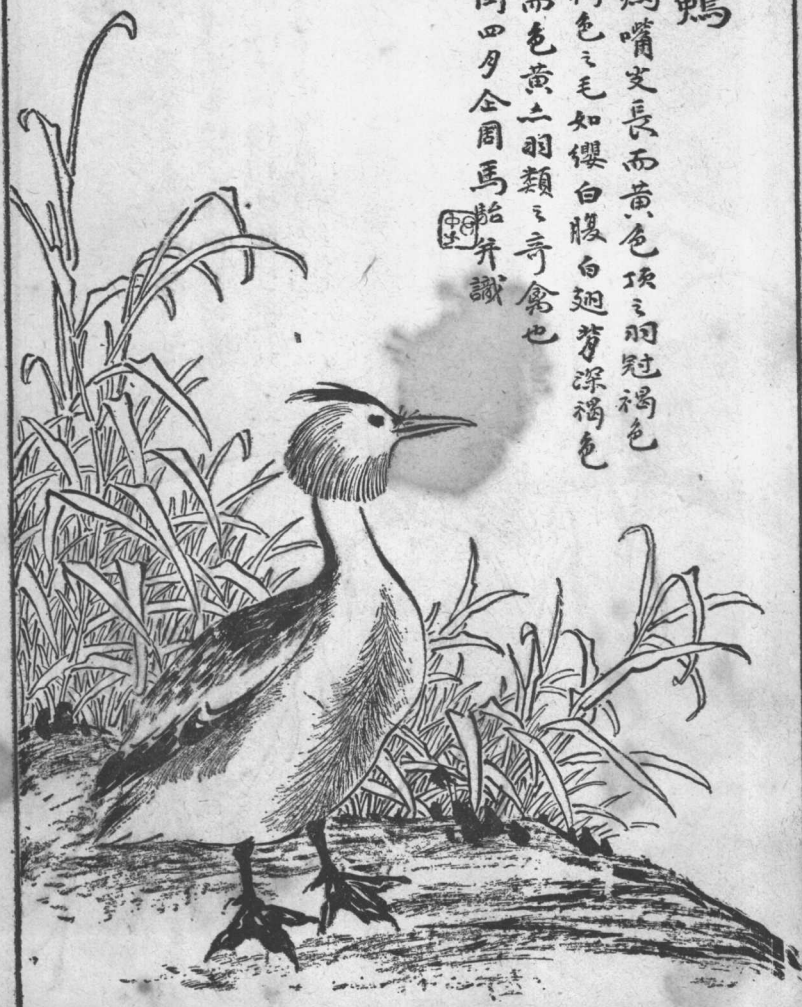 鴨
嘴尖長而黄色頂之羽冠褐色
色之毛如纓白腹白翅背深褐色
而色黄亦羽類之奇禽也
四夕仝周馬駘并識